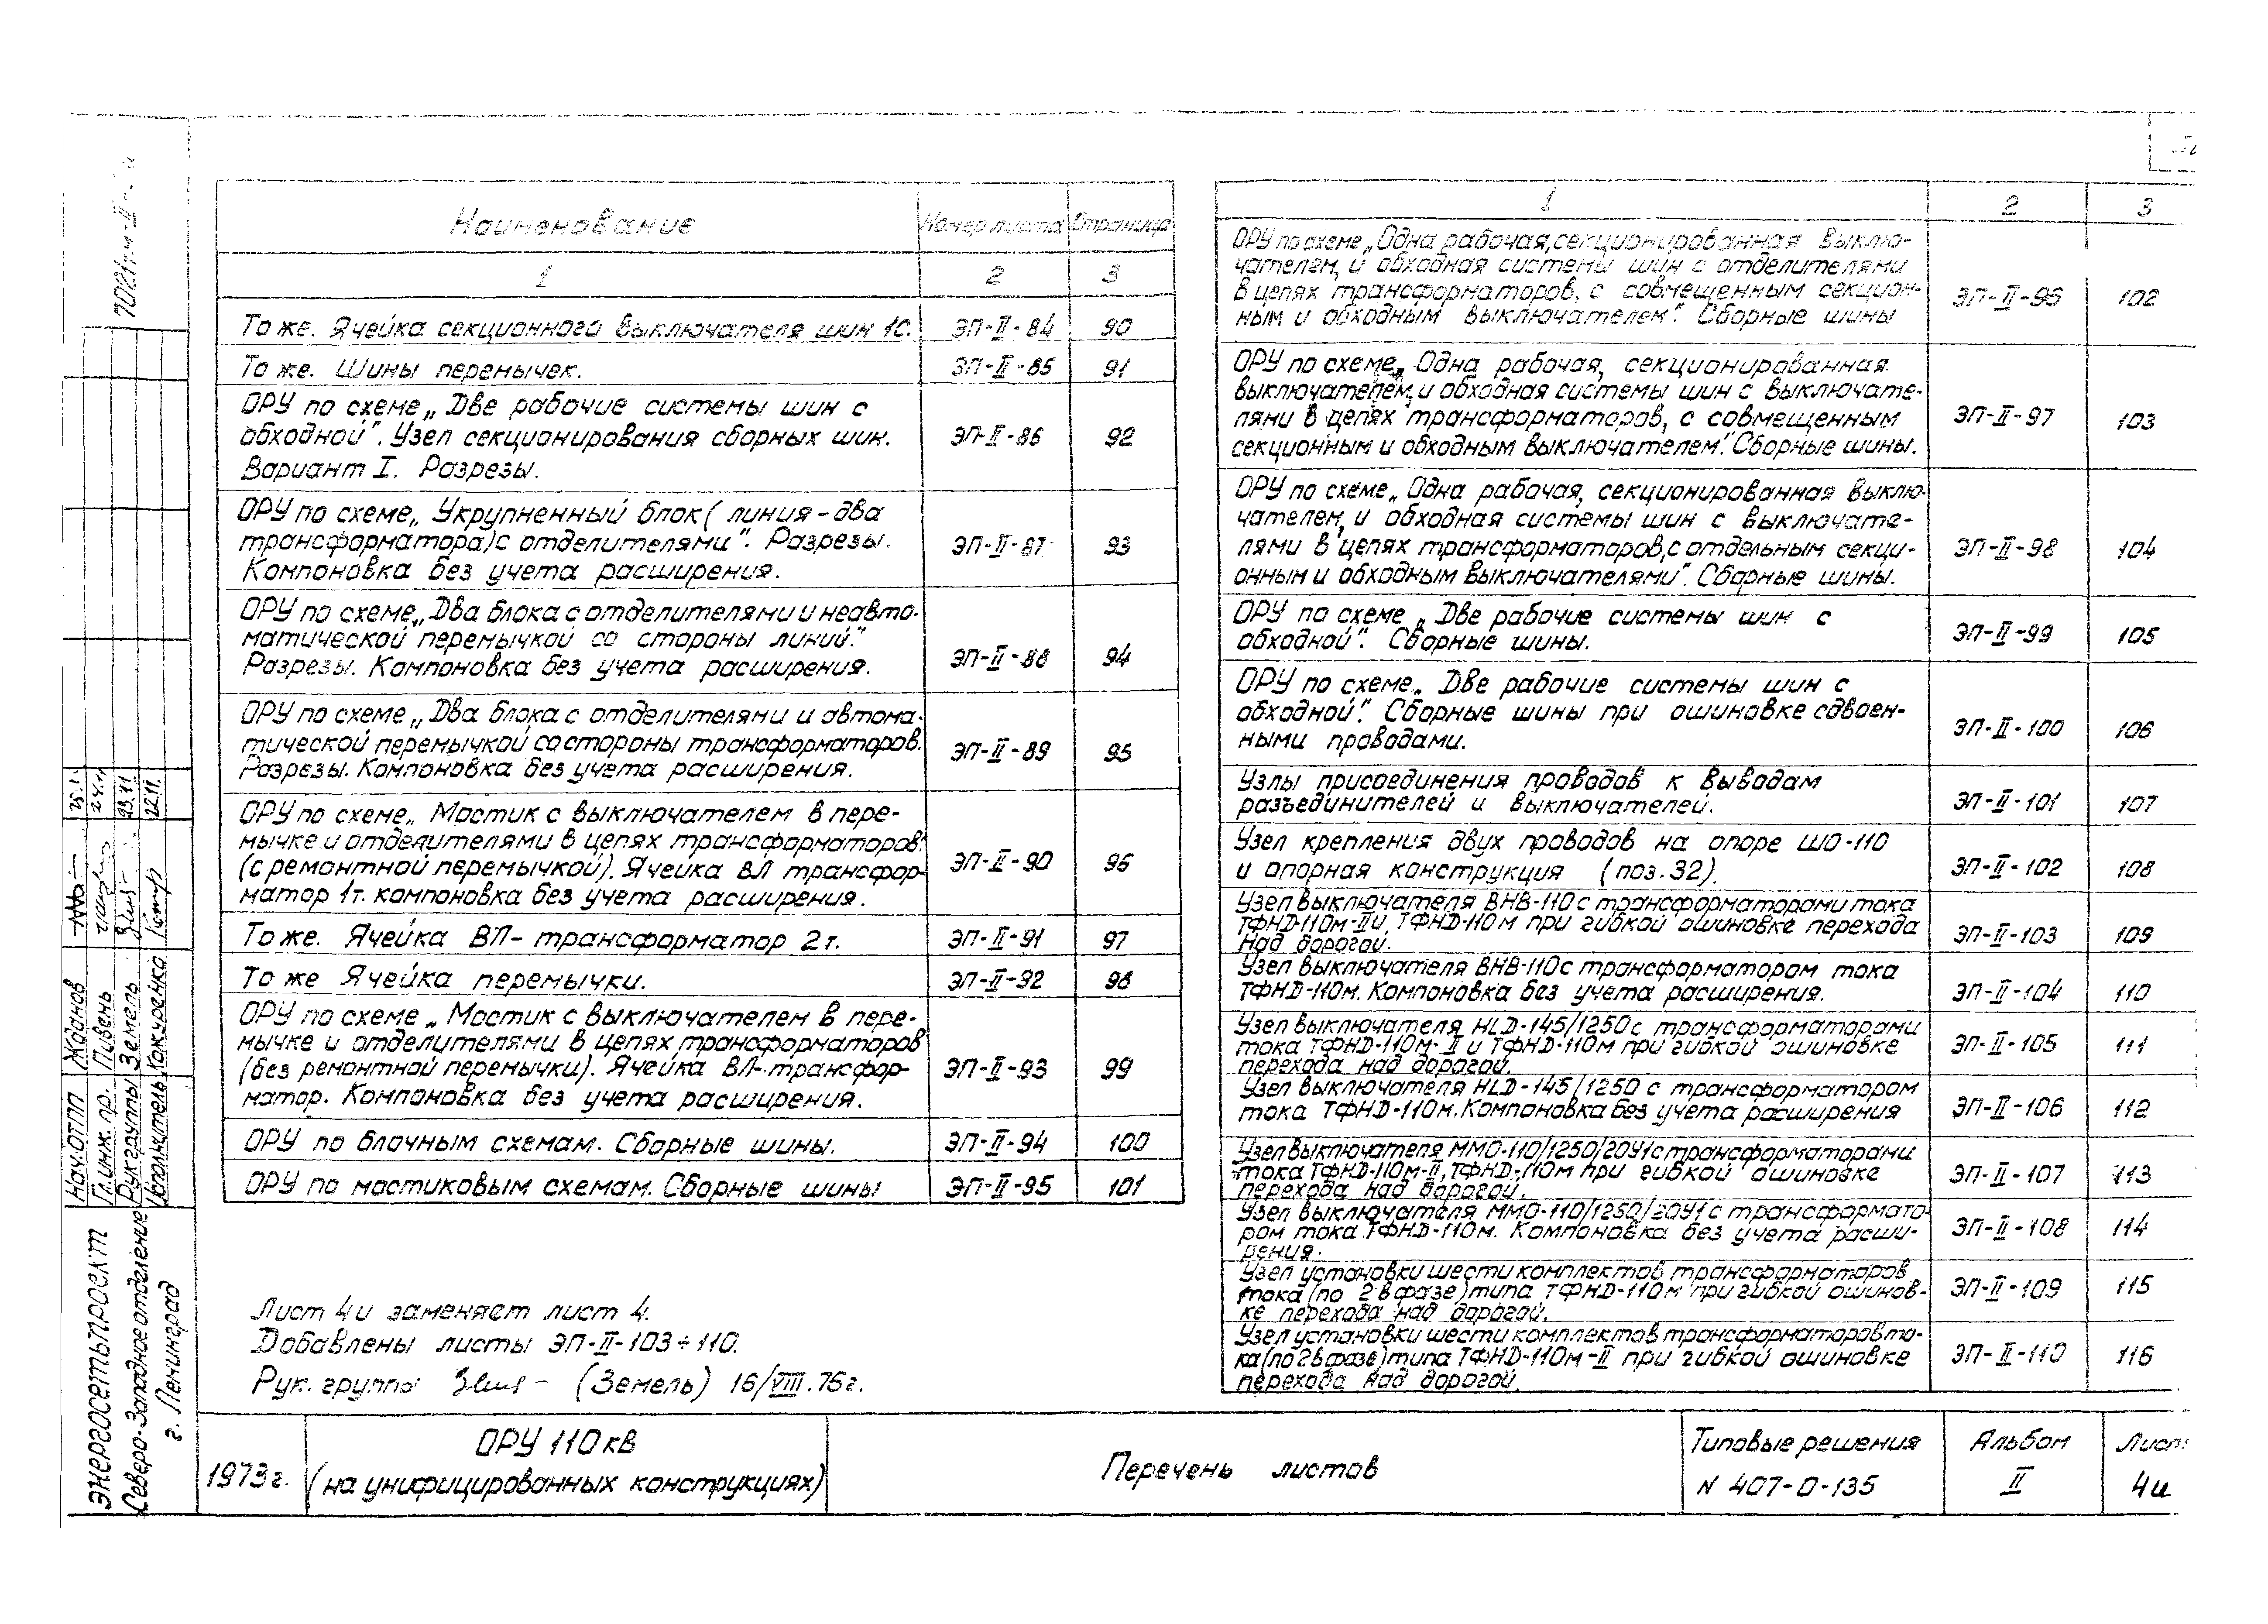 Наименование Номер листа Страница
1 2 3
То же. Ячейка секционного выключателя шин 1С. ЭП-II-84 90
То же. Шины перемычек. ЭП-II-85 91
ОРУ по схеме „Две рабочие системы шин с
обходной". Узел секционирования сборных шин. ЭП-II-86 92
Вариант I. Разрезы.
ОРУ по схеме „Укрупненный блок (линия - два
трансформатора) с отделителями". Разрезы. ЭП-II-87 93
Компоновка без учета расширения.
ОРУ по схеме „Два блока с отделителями и неавто-
матической перемычкой со стороны линий".
Разрезы. Компоновка без учета расширения. ЭП-II-88 94
ОРУ по схеме „Два блока с отделителями и автома-
тической перемычкой со стороны трансформаторов. ЭП-II-89 95
Разрезы. Компоновка без учета расширения.
ОРУ по схеме „Мостик с выключателем в пере-
мычке и отделителями в цепях трансформаторов"
(с ремонтной перемычкой). Ячейка ВЛ трансфор- ЭП-II-90 96
матор 1т. компоновка без учета расширения.
То же. Ячейка ВЛ - трансформатор 2т. ЭП-II-91 97
То же Ячейка перемычки. ЭП-II-92 98
ОРУ по схеме „Мостик с выключателем в пере-
мычке и отделителями в цепях трансформаторов
(без ремонтной перемычки). Ячейка ВЛ-трансфор- ЭП-II-93 99
матор. Компоновка без учета расширения.
ОРУ по блочным схемам. Сборные шины. ЭП-II-94 100
ОРУ по мостиковым схемам. Сборные шины ЭП-II-95 101
Лист 4и заменяет лист 4.
Добавлены листы ЭП-II-103÷110.
Рук. группы (Земель) 16/VIII.76г.
1 2 3
ОРУ по схеме „Одна рабочая, секционированная выклю-
чателем, и обходная системы шин с отделителями
в цепях трансформаторов, с совмещенным секцион- ЭП-II-96 102
ным и обходным выключателем". Сборные шины
ОРУ по схеме „Одна рабочая, секционированная
выключателем, и обходная системы шин с выключате-
лями в цепях трансформаторов, с совмещенным ЭП-II-97 103
секционным и обходным выключателем". Сборные шины.
ОРУ по схеме „Одна рабочая, секционированная выклю-
чателем, и обходная системы шин с выключате-
лями в цепях трансформаторов, с отдельным секци- ЭП-II-98 104
онным и обходным выключателями". Сборные шины.
ОРУ по схеме „Две рабочие системы шин с
обходной". Сборные шины. ЭП-II-99 105
ОРУ по схеме „Две рабочие системы шин с
обходной". Сборные шины при ошиновке сдвоен- ЭП-II-100 106
ными проводами.
Узлы присоединения проводов к выводам
разъединителей и выключателей. ЭП-II-101 107
Узел крепления двух проводов на опоре ШО-110
и опорная конструкция (поз.32). ЭП-II-102 108
Узел выключателя ВНВ-110 с трансформаторами тока
ТФНД-110м-II и ТФНД-110м при гибкой ошиновке перехода ЭП-II-103 109
над дорогой.
Узел выключателя ВНВ-110 с трансформатором тока
ТФНД-110м. Компоновка без учета расширения. ЭП-II-104 110
Узел выключателя HLD-145/1250 с трансформаторами
тока ТФНД-110м-II и ТФНД-110м при гибкой ошиновке ЭП-II-105 111
перехода над дорогой.
Узел выключателя HLD-145/1250 с трансформатором
тока ТФНД-110м. Компоновка без учета расширения ЭП-II-106 112
Узел выключателя ММО-110/1250/20У1 с трансформаторами
тока ТФНД-110м-II, ТФНД-110м при гибкой ошиновке ЭП-II-107 113
перехода над дорогой.
Узел выключателя ММО-110/1250/20У1 с трансформато-
ром тока ТФНД-110м. Компоновка без учета расши- ЭП-II-108 114
рения.
Узел установки шести комплектов трансформаторов
тока (по 2 в фазе) типа ТФНД-110м при гибкой ошинов- ЭП-II-109 115
ке перехода над дорогой.
Узел установки шести комплектов трансформаторов то-
ка (по 2 в фазе) типа ТФНД-110м-II при гибкой ошиновке ЭП-II-110 116
перехода над дорогой.
Нач. ОТПП Жданов
Гл. инж. пр. Пивень
Рук. группы Земель 23.11
Исполнитель Кокуренко 22.11.
ЭНЕРГОСЕТЬПРОЕКТ
Северо-Западное отделение
г. Ленинград
1973г.
ОРУ 110кв
(на унифицированных конструкциях)
Перечень листов
Типовые решения
N 407-0-135
Альбом
II
Лист
4и